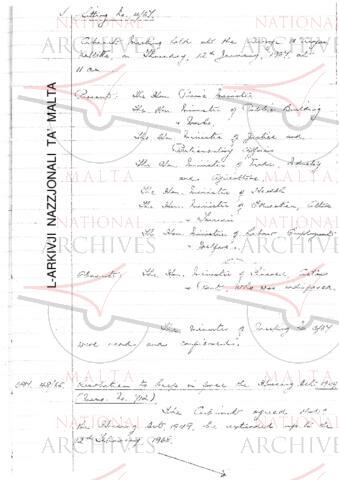 Sitting No. 4/67.
Cabinet Meeting held at the
Valletta, on Thursday, 12th January, 1967, at
11 am
Present: The Hon. Prime Minister
The Hon. Minister of Public Building
& Works.
The Hon. Minister of Justice and
Parliamentary Affairs
The Hon. Minister of Trade, Industry
and Agriculture.
The Hon. Minister of Health
The Hon. Minister of Education, Culture
& Tourism
The Hon. Minister of Labour Employment
& Welfare.
Absent: The Hon. Minister of Finance, Customs
& Port, who was indisposed.
The Minutes of Meeting No 3/67
were read and confirmed.
Resolution to keep in force the Housing Act 1949
(Memo. No.
The Cabinet agreed that
the Housing Act, 1949, be extended up to the
1968.
L-ARKIVJI NAZZJONALI TA' MALTA
NATIONAL
ARCHIVES
MALTA